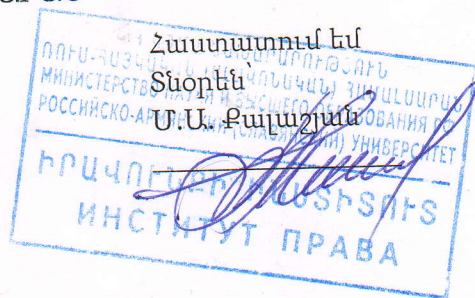 Հաստատում եմ
Տնօրեն՝
Մ.Ա. Քալաշյան
ՌՈՒՍ-ՀԱՅԿԱԿԱՆ
МИНИСТЕРСТВО НАУКИ И ВЫСШЕГО ОБРАЗОВАНИЯ РФ
РОССИЙСКО-АРМЯНСКИЙ (СЛАВЯНСКИЙ) УНИВЕРСИТЕТ
ԻՐԱՎՈՒՆՔԻ ԻՆՍՏԻՏՈՒՏ
ИНСТИТУТ ПРАВА